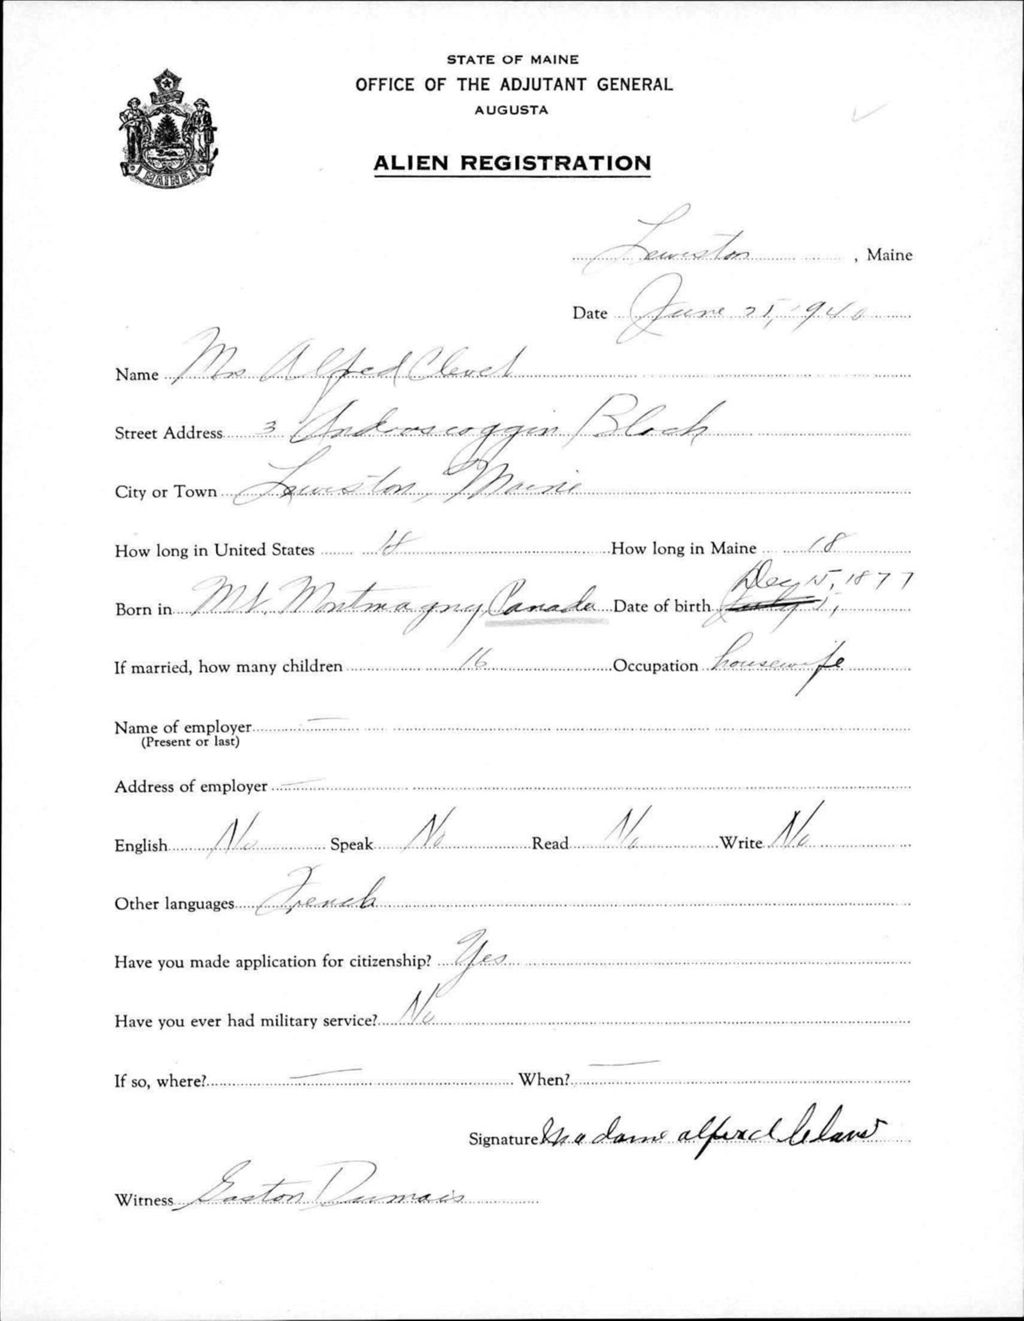 STATE OF MAINE
OFFICE OF THE ADJUTANT GENERAL
AUGUSTA
MAINE
ALIEN REGISTRATION
Lewiston, Maine
Date June 25, 1940
Name Mrs Alfred
Street Address 3 Androscoggin Block
City or Town Lewiston, Maine
How long in United States How long in Maine 18
Dec 15, 1877
Born in Mt Montmagny, Canada Date of birth
If married, how many children 16 Occupation housewife
Name of employer —
(Present or last)
Address of employer —
English No Speak No Read No Write No
Other languages French
Have you made application for citizenship? Yes
Have you ever had military service? No
If so, where? — When? —
Signature Madame alfred
Witness Gaston Dumais